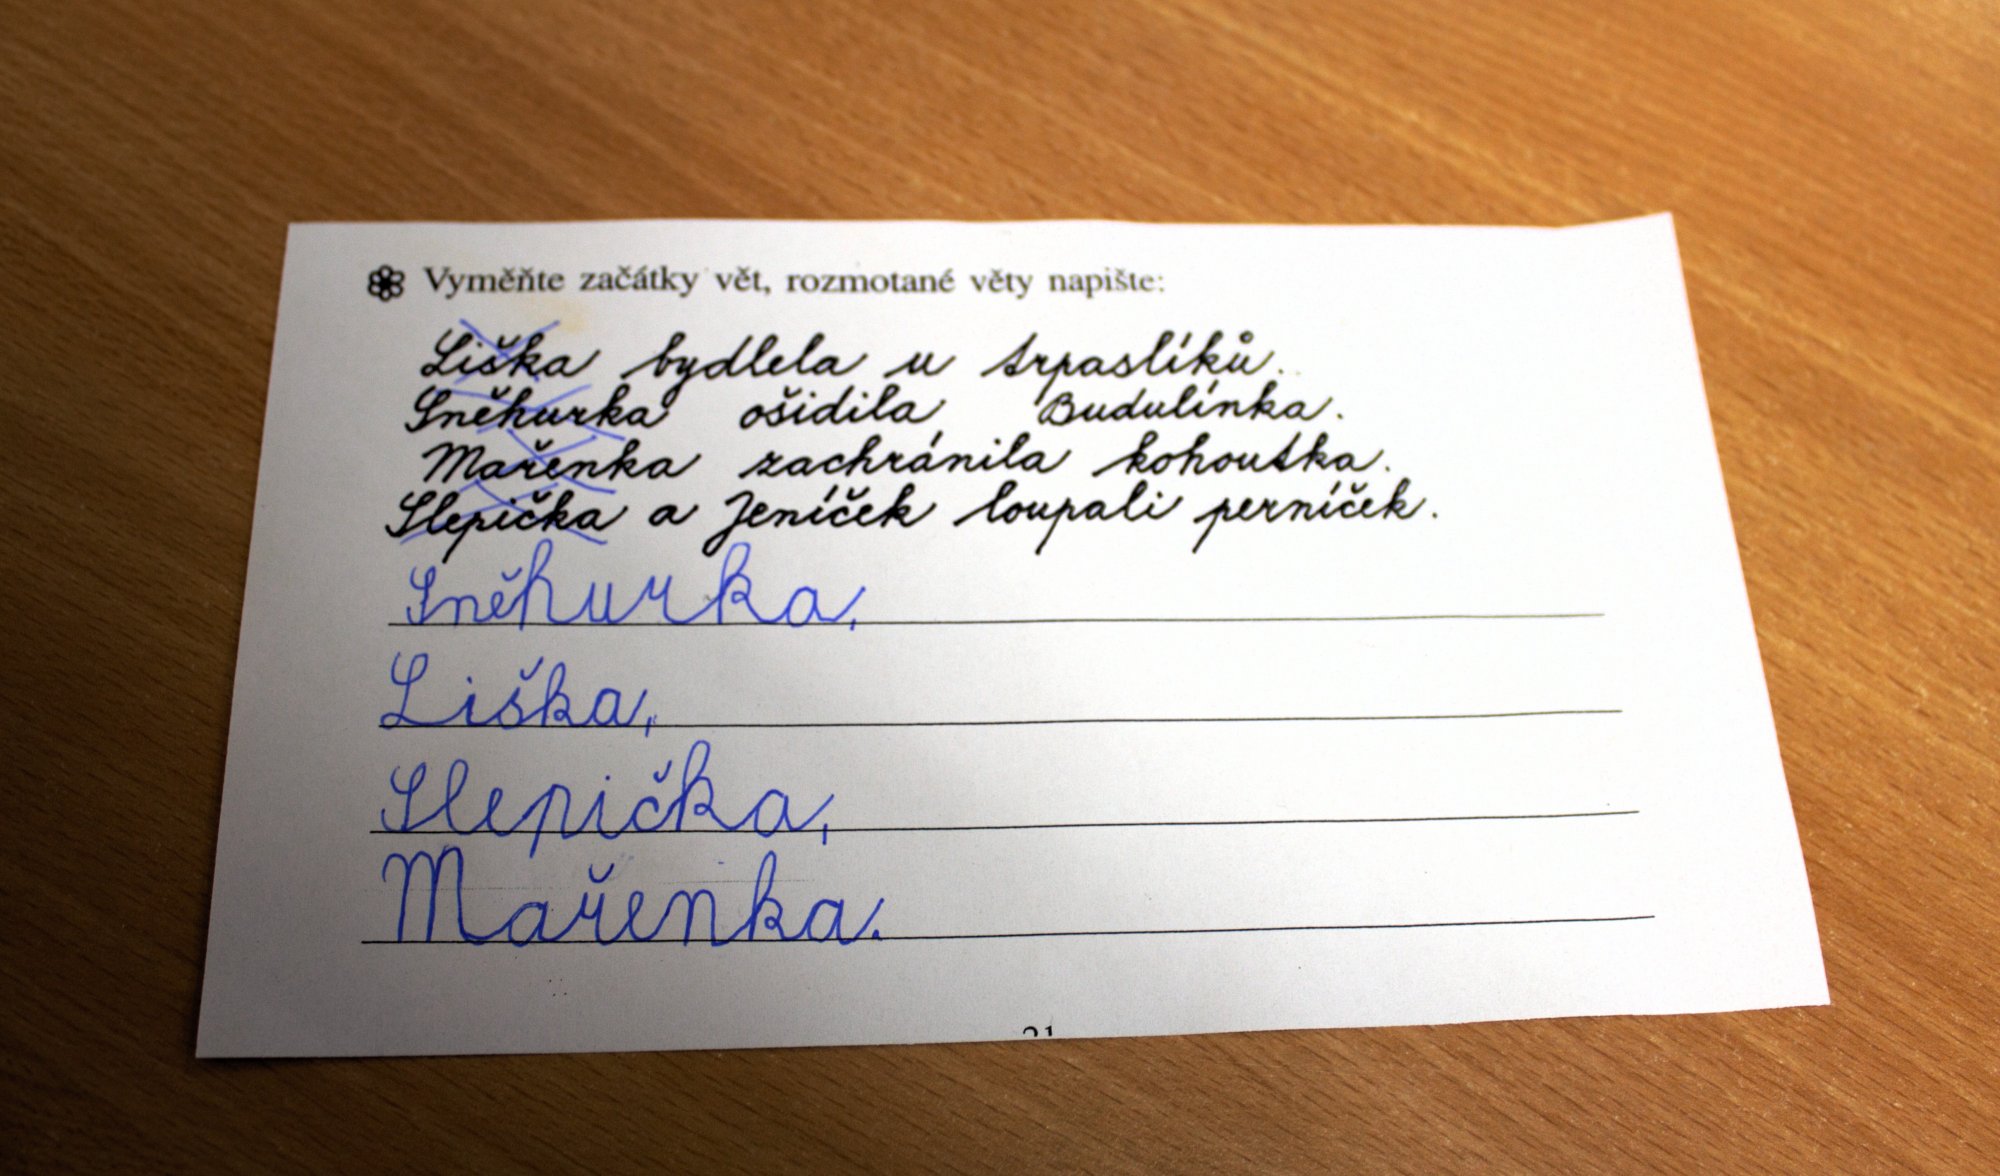 Vyměňte začátky vět, rozmotané věty napište:
Liška bydlela u trpaslíků.
Sněhurka ošidila Budulínka.
Mařenka zachránila kohoutka.
Slepička a Jeníček loupali perníček.
Sněhurka,
Liška,
Slepička,
Mařenka.
21